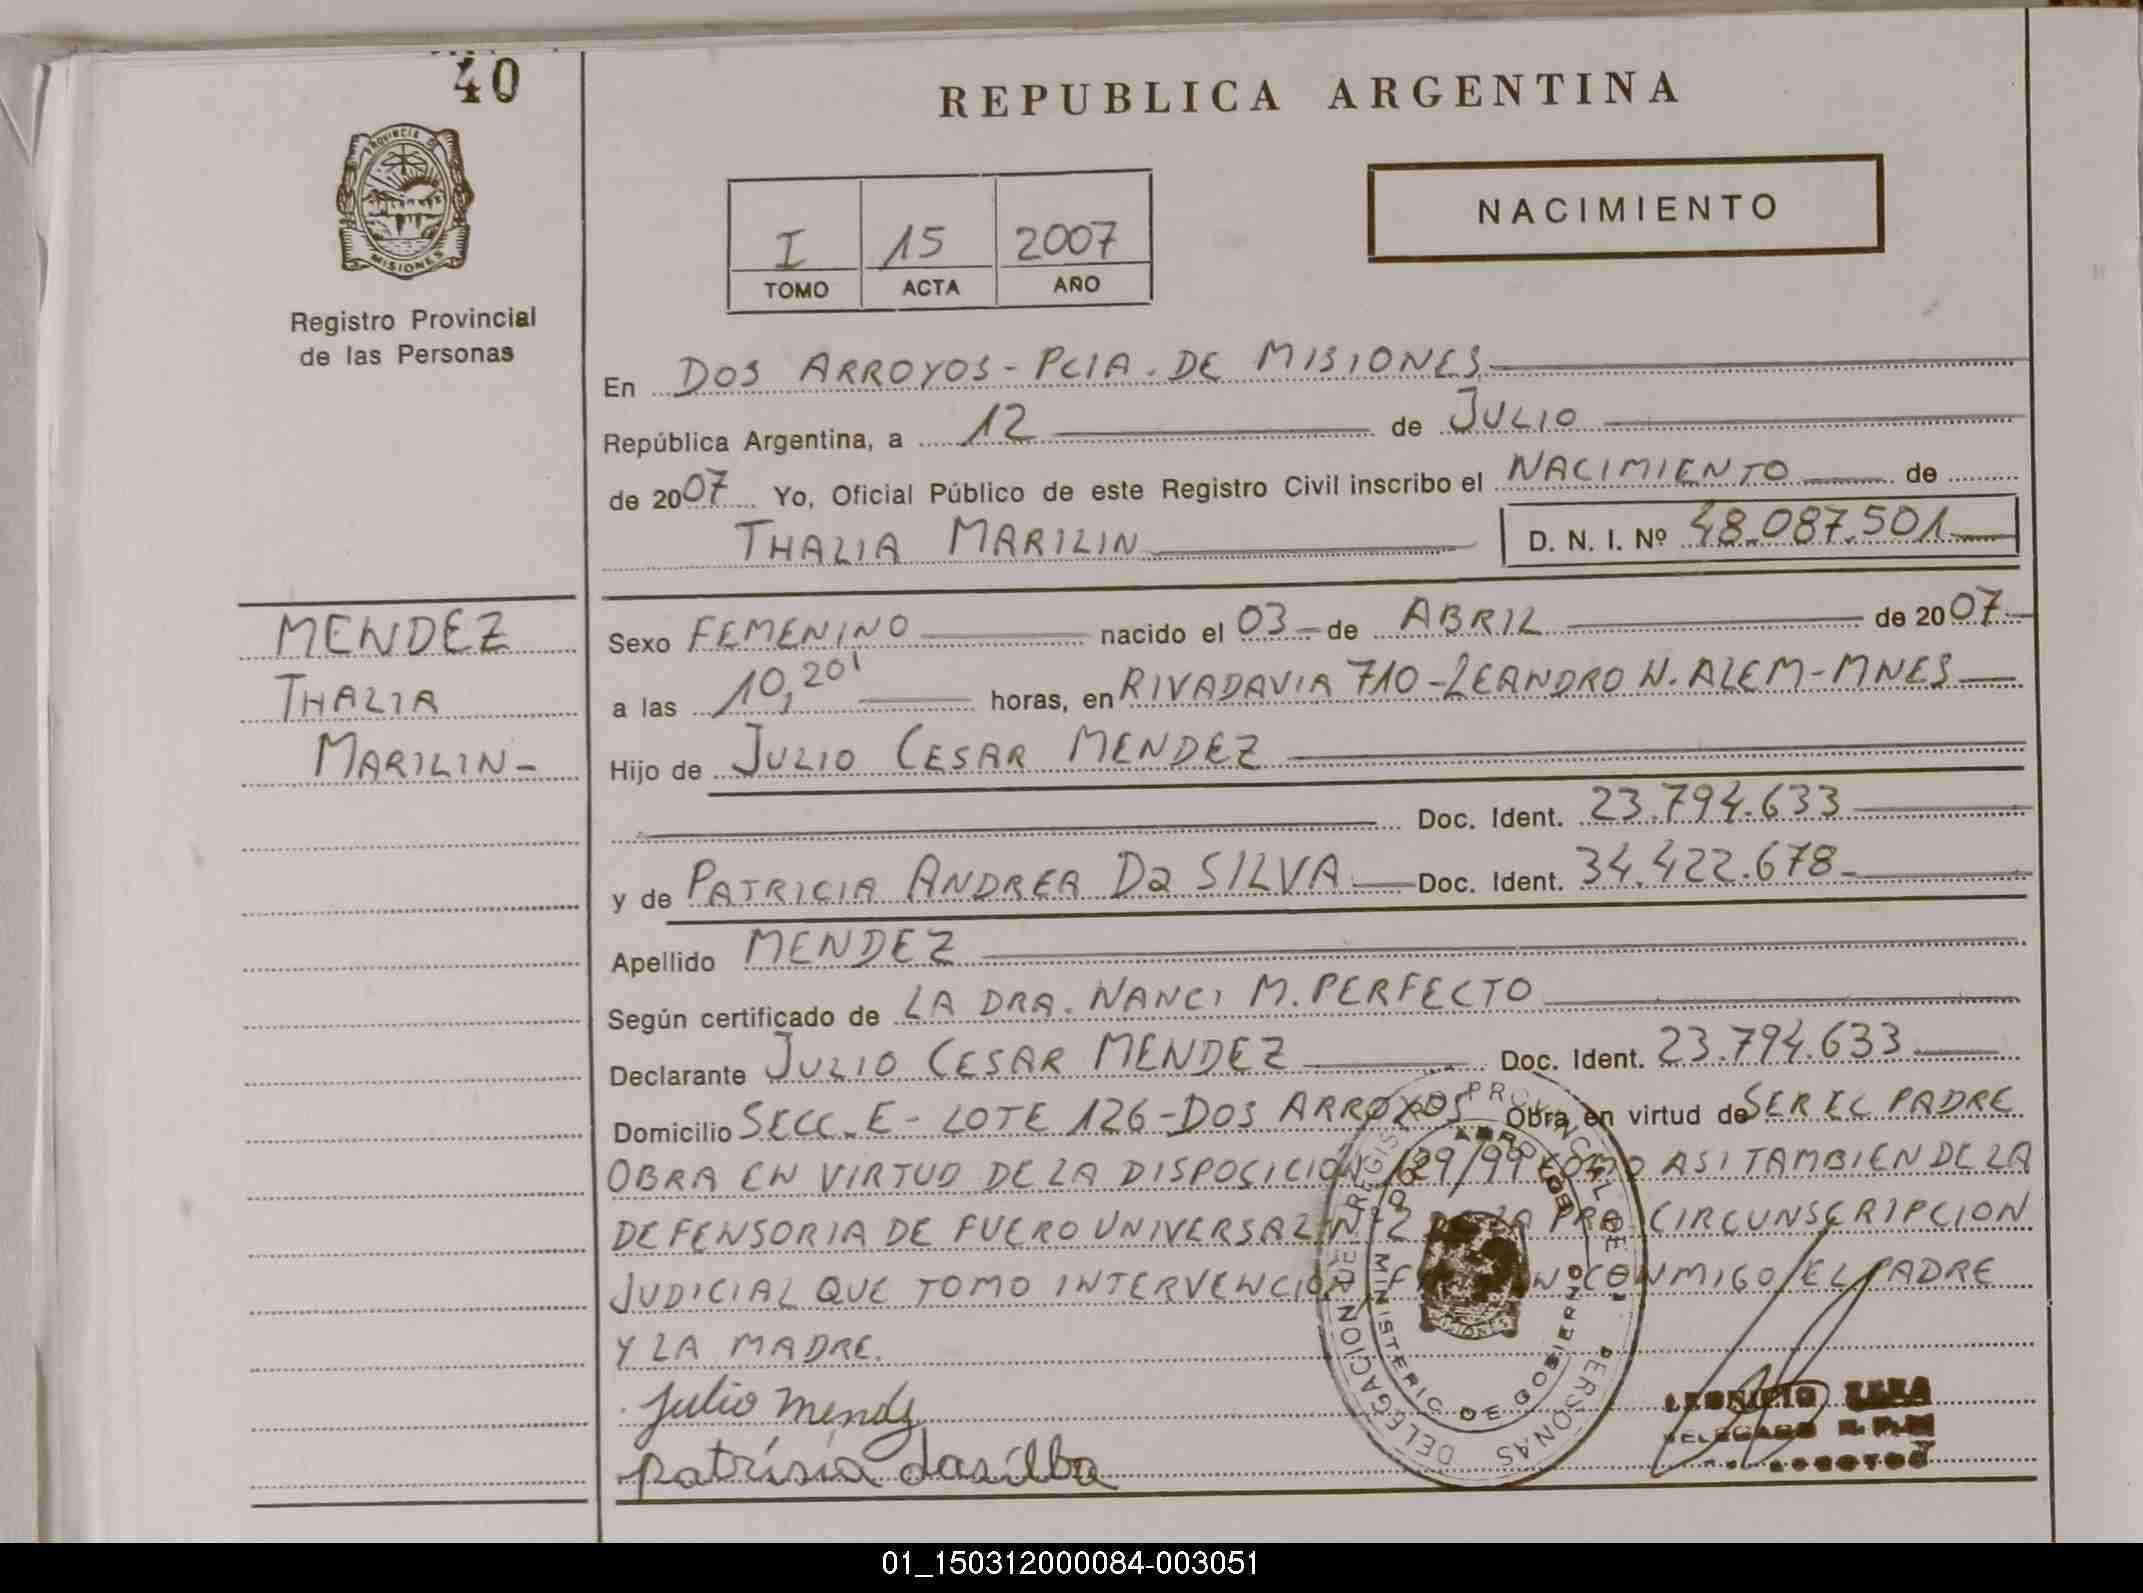 40
PROVINCIA DE
MISIONES
Registro Provincial
de las Personas
REPUBLICA ARGENTINA
NACIMIENTO
I 15 2007
TOMO ACTA AÑO
En DOS ARROYOS - PCIA. DE MISIONES
República Argentina, a 12 de JULIO
de 2007 Yo, Oficial Público de este Registro Civil inscribo el NACIMIENTO de
THALIA MARILIN D. N. I. Nº 48.087.501
MENDEZ
THALIA
MARILIN-
Sexo FEMENINO nacido el 03 de ABRIL de 2007
a las 10,20' horas, en RIVADAVIA 710 - LEANDRO N. ALEM - MNES
Hijo de JULIO CESAR MENDEZ
Doc. Ident. 23.794.633
y de PATRICIA ANDREA Da SILVA Doc. Ident. 34.422.678
Apellido MENDEZ
Según certificado de LA DRA. NANCI M. PERFECTO
Declarante JULIO CESAR MENDEZ Doc. Ident. 23.794.633
Domicilio SECC. E - LOTE 126 - DOS ARROYOS Obra en virtud de SER EL PADRE
OBRA EN VIRTUD DE LA DISPOSICION 129/99 COMO ASI TAMBIEN DE LA
DEFENSORIA DE FUERO UNIVERSAL Nº 2 DE LA PRA CIRCUNSCRIPCION
JUDICIAL QUE TOMO INTERVENCION CONMIGO EL PADRE
Y LA MADRE.
Julio Mendz
patrisia dasilba
DELEGACION REGISTRO PROVINCIAL DE PERSONAS
MINISTERIO DE GOBIERNO
DOS ARROYOS
DELEGADO
01_150312000084-003051